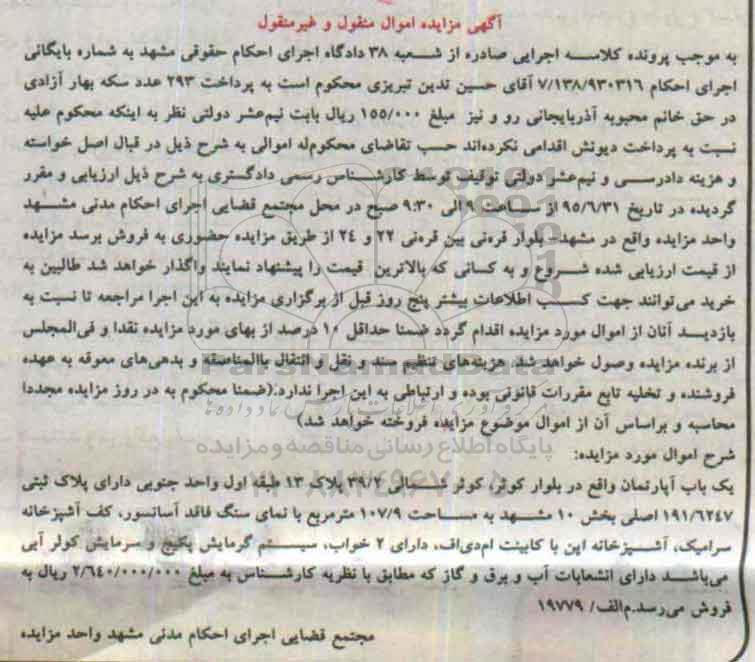 آگهی مزایده اموال منقول و غیرمنقول
به موجب پرونده کلاسه اجرایی صادره از شعبه ۳۸ دادگاه اجرای احکام حقوقی مشهد به شماره بایگانی
اجرای احکام ۷/۱۳۸/۹۳۰۳۱۶ آقای حسین تدین تبریزی محکوم است به پرداخت ۲۹۳ عدد سکه بهار آزادی
در حق خانم محبوبه آذربایجانی رو و نیز مبلغ ۱۵۵/۰۰۰ ریال بابت نیم‌عشر دولتی نظر به اینکه محکوم علیه
نسبت به پرداخت دیونش اقدامی نکرده‌اند حسب تقاضای محکوم‌له اموالی به شرح ذیل در قبال اصل خواسته
و هزینه دادرسی و نیم‌عشر دولتی توقیف توسط کارشناس رسمی دادگستری به شرح ذیل ارزیابی و مقرر
گردیده در تاریخ ۹۵/۶/۳۱ از ساعت ۹ الی ۹:۳۰ صبح در محل مجتمع قضایی اجرای احکام مدنی مشهد
واحد مزایده واقع در مشهد- بلوار قره‌نی بین قره‌نی ۲۲ و ۲۴ از طریق مزایده حضوری به فروش برسد مزایده
از قیمت ارزیابی شده شروع و به کسانی که بالاترین قیمت را پیشنهاد نمایند واگذار خواهد شد طالبین به
خرید می‌توانند جهت کسب اطلاعات بیشتر پنج روز قبل از برگزاری مزایده به این اجرا مراجعه تا نسبت به
بازدید آنان از اموال مورد مزایده اقدام گردد ضمنا حداقل ۱۰ درصد از بهای مورد مزایده نقدا و فی‌المجلس
از برنده مزایده وصول خواهد شد هزینه‌های تنظیم سند و نقل و انتقال بالمناصفه و بدهی‌های معوقه به عهده
فروشنده و تخلیه تابع مقررات قانونی بوده و ارتباطی به این اجرا ندارد.(ضمنا محکوم به در روز مزایده مجددا
محاسبه و براساس آن از اموال موضوع مزایده فروخته خواهد شد)
شرح اموال مورد مزایده:
یک باب آپارتمان واقع در بلوار کوثر، کوثر شمالی ۳۹/۲ پلاک ۱۳ طبقه اول واحد جنوبی دارای پلاک ثبتی
۱۹۱/۶۲۴۷ اصلی بخش ۱۰ مشهد به مساحت ۱۰۷/۹ مترمربع با نمای سنگ فاقد آسانسور، کف آشپزخانه
سرامیک، آشپزخانه اپن با کابینت ام‌دی‌اف، دارای ۲ خواب، سیستم گرمایش پکیج و سرمایش کولر آبی
می‌باشد دارای انشعابات آب و برق و گاز که مطابق با نظریه کارشناس به مبلغ ۲/۶۴۰/۰۰۰/۰۰۰ ریال به
فروش می‌رسد.م‌الف/ ۱۹۷۷۹
مجتمع قضایی اجرای احکام مدنی مشهد واحد مزایده
ParsNamadData
پایگاه اطلاع رسانی مناقصه و مزایده